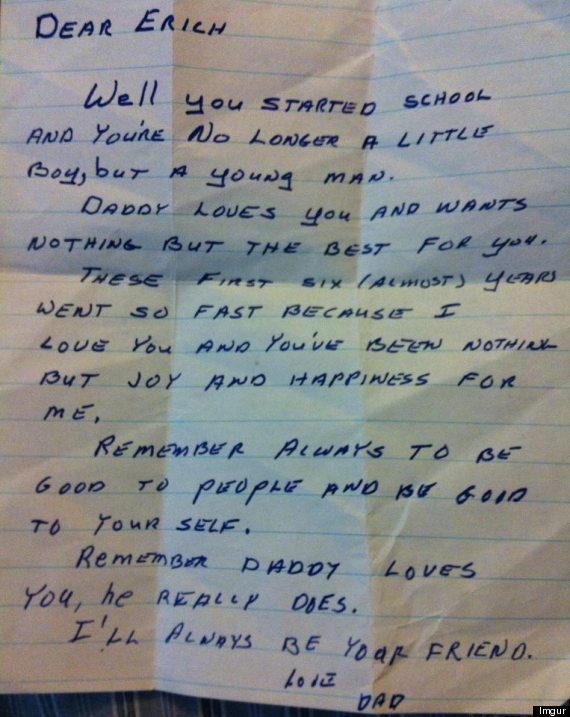 DEAR ERICH
Well you STARTED SCHOOL
AND YOU'RE NO LONGER A LITTLE
Boy, but A young MAN.
DADDY LOVES you AND WANTS
NOTHING BUT THE BEST FOR you.
THESE FIRST SIX (ALMOST) YEARS
WENT SO FAST BECAUSE I
LOVE YOU AND YOU'VE BEEN NOTHING
BUT JOY AND HAPPINESS FOR
ME.
REMEMBER ALWAYS TO BE
GOOD TO PEOPLE AND BE GOOD
TO YOUR SELF.
REMEMBER DADDY LOVES
YOU, he REALLY DOES.
I'LL ALWAYS BE YOUR FRIEND.
LOVE
DAD
Imgur